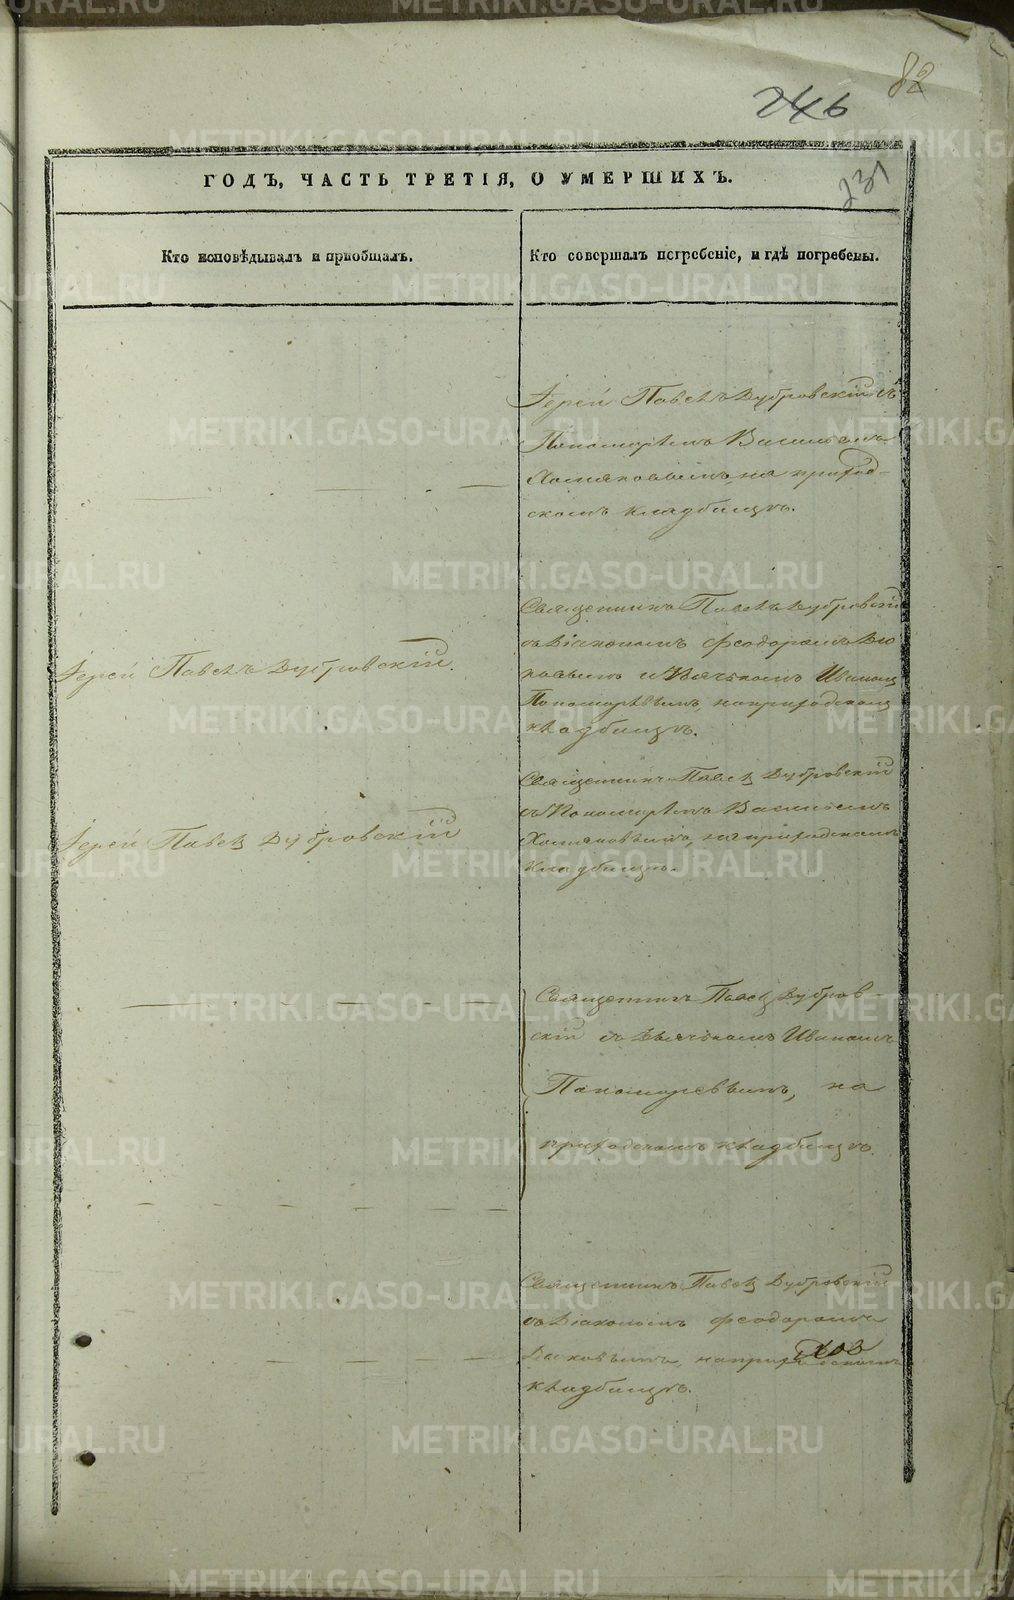 82
246
231
ГОДЪ, ЧАСТЬ ТРЕТІЯ, О УМЕРШИХЪ.
Кто исповѣдывалъ и пріобщалъ.
Кто совершалъ погребеніе, и гдѣ погребены.
Іерей Павелъ Дубровскій съ
Пономаремъ Васильемъ
Хомяковымъ, на приход-
скомъ кладбищѣ.
Іерей Павелъ Дубровскій.
Священникъ Павелъ Дубровскій
съ Діакономъ Феодоромъ
и Дьячкомъ Иваномъ
Пономаревымъ, на приходскомъ
кладбищѣ.
Іерей Павелъ Дубровскій
Священникъ Павелъ Дубровскій
съ Пономаремъ Васильемъ
Хомяковымъ, на приходскомъ
кладбищѣ.
Священникъ Павелъ Дубров-
скій съ Дьячкомъ Иваномъ
Пономаревымъ, на
приходскомъ кладбищѣ.
Священникъ Павелъ Дубровскій
съ Діакономъ Феодоромъ
на приходскомъ
кладбищѣ.
METRIKI.GASO-URAL.RU